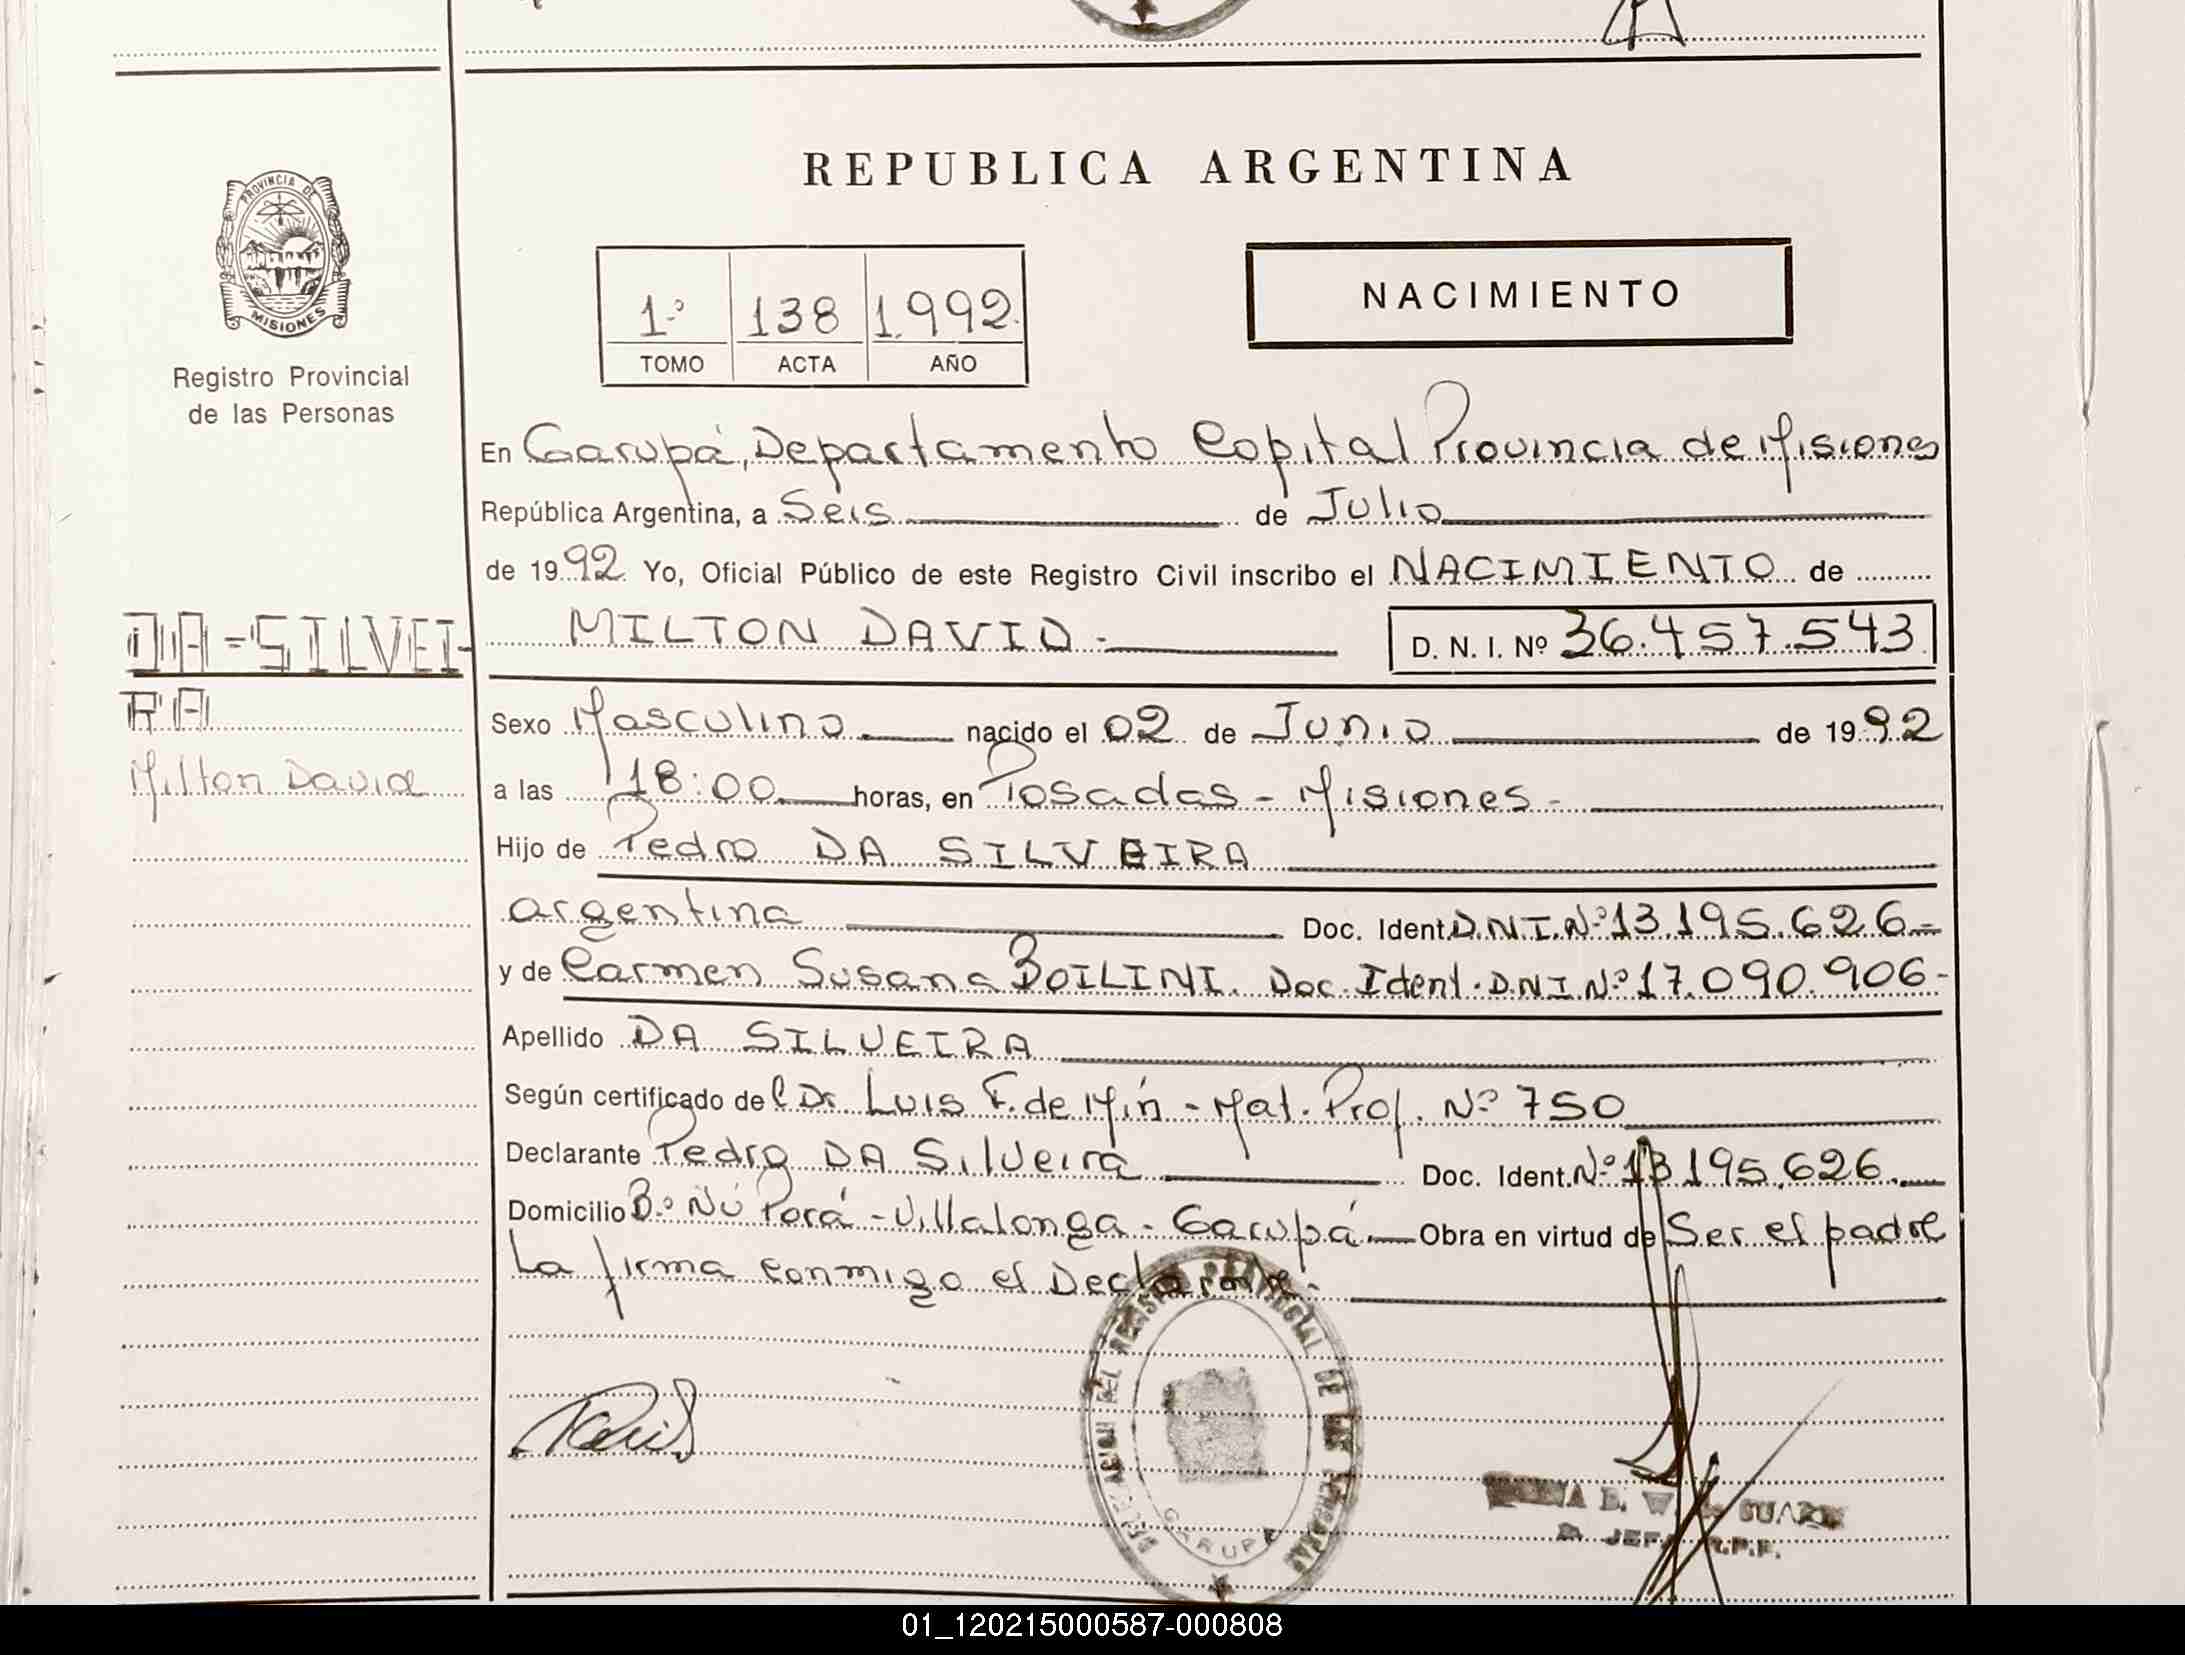 PROVINCIA DE
MISIONES
Registro Provincial
de las Personas
DA=SILVEI-
RA
Milton David
REPUBLICA ARGENTINA
1º 138 1.992.
TOMO ACTA AÑO
NACIMIENTO
En Garupá, Departamento Capital Provincia de Misiones
República Argentina, a Seis de Julio
de 1992. Yo, Oficial Público de este Registro Civil inscribo el NACIMIENTO de
MILTON DAVID.- D. N. I. Nº 36.457.543
Sexo Masculino nacido el 02 de Junio de 1992
a las 18:00 horas, en Posadas - Misiones -
Hijo de Pedro DA SILVEIRA
argentina Doc. Ident. D.N.I.Nº 13.195.626-
y de Carmen Susana BOILINI. Doc. Ident. D.N.I.Nº 17.090.906-
Apellido DA SILVEIRA
Según certificado del Dr. Luis F. de - Mat. Prof. Nº 750
Declarante Pedro DA SilVeira Doc. Ident. Nº 13.195.626.
Domicilio Bº Ñú Porá - Villalonga - Garupá Obra en virtud de Ser el padre
La firma conmigo el Declarante.
DEL REGISTRO PROVINCIAL DE LAS PERSONAS
GARUPA
SUAREZ
JEFA R.P.P.
01_120215000587-000808